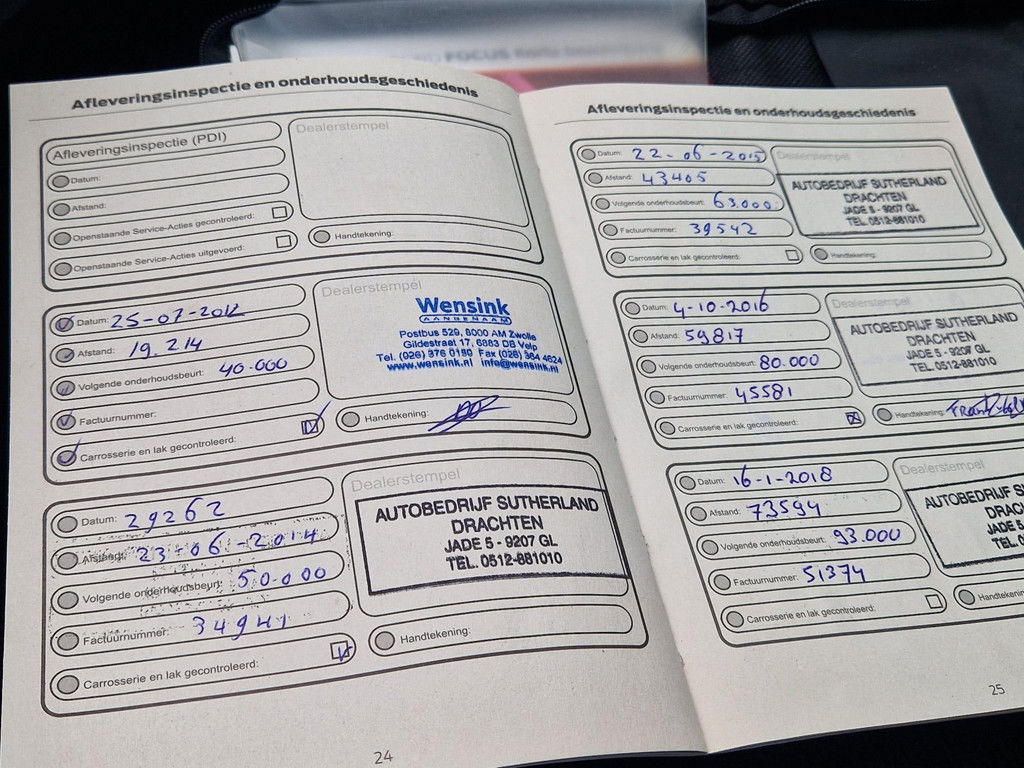 FOCUS
Afleveringsinspectie en onderhoudsgeschiedenis
Afleveringsinspectie (PDI)
Datum:
Afstand:
Openstaande Service-Acties gecontroleerd:
Openstaande Service-Acties uitgevoerd:
Dealerstempel
Handtekening:
Datum: 25-07-2012
Afstand: 19.214
Volgende onderhoudsbeurt: 40.000
Factuurnummer:
Carrosserie en lak gecontroleerd:
Dealerstempel
Wensink
AANGENAAM
Postbus 529, 8000 AM Zwolle
Gildestraat 17, 6883 DB Velp
Tel. (026) 376 0130 Fax (026) 364 4624
www.wensink.nl info@wensink.nl
Handtekening:
Datum: 29262
Afstand: 23-06-2014
Volgende onderhoudsbeurt: 50.000
Factuurnummer: 34941
Carrosserie en lak gecontroleerd:
Dealerstempel
AUTOBEDRIJF SUTHERLAND
DRACHTEN
JADE 5 - 9207 GL
TEL. 0512-881010
Handtekening:
24
Afleveringsinspectie en onderhoudsgeschiedenis
Datum: 22-06-2015
Afstand: 43405
Volgende onderhoudsbeurt: 63.000
Factuurnummer: 39542
Carrosserie en lak gecontroleerd:
Dealerstempel
AUTOBEDRIJF SUTHERLAND
DRACHTEN
JADE 5 - 9207 GL
TEL. 0512-881010
Handtekening:
Datum: 4-10-2016
Afstand: 59817
Volgende onderhoudsbeurt: 80.000
Factuurnummer: 45581
Carrosserie en lak gecontroleerd:
Dealerstempel
AUTOBEDRIJF SUTHERLAND
DRACHTEN
JADE 5 - 9207 GL
TEL. 0512-881010
Handtekening:
Datum: 16-1-2018
Afstand: 73594
Volgende onderhoudsbeurt: 93.000
Factuurnummer: 51374
Carrosserie en lak gecontroleerd:
Dealerstempel
AUTOBEDRIJF S
DRAC
JADE 5
TEL. 05
Handteken
25